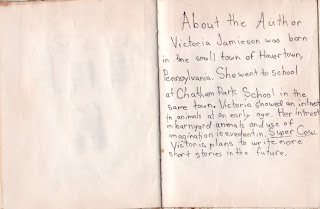 About the Author
Victoria Jamieson was born
in the small town of Havertown,
Pennsylvania. She went to school
at Chatham Park School in the
same town. Victoria showed an intrest
in animals at an early age. Her intrest
in barnyard animals and use of
imagination is evedent in, Super Cow.
Victoria plans to write more
short stories in the future.